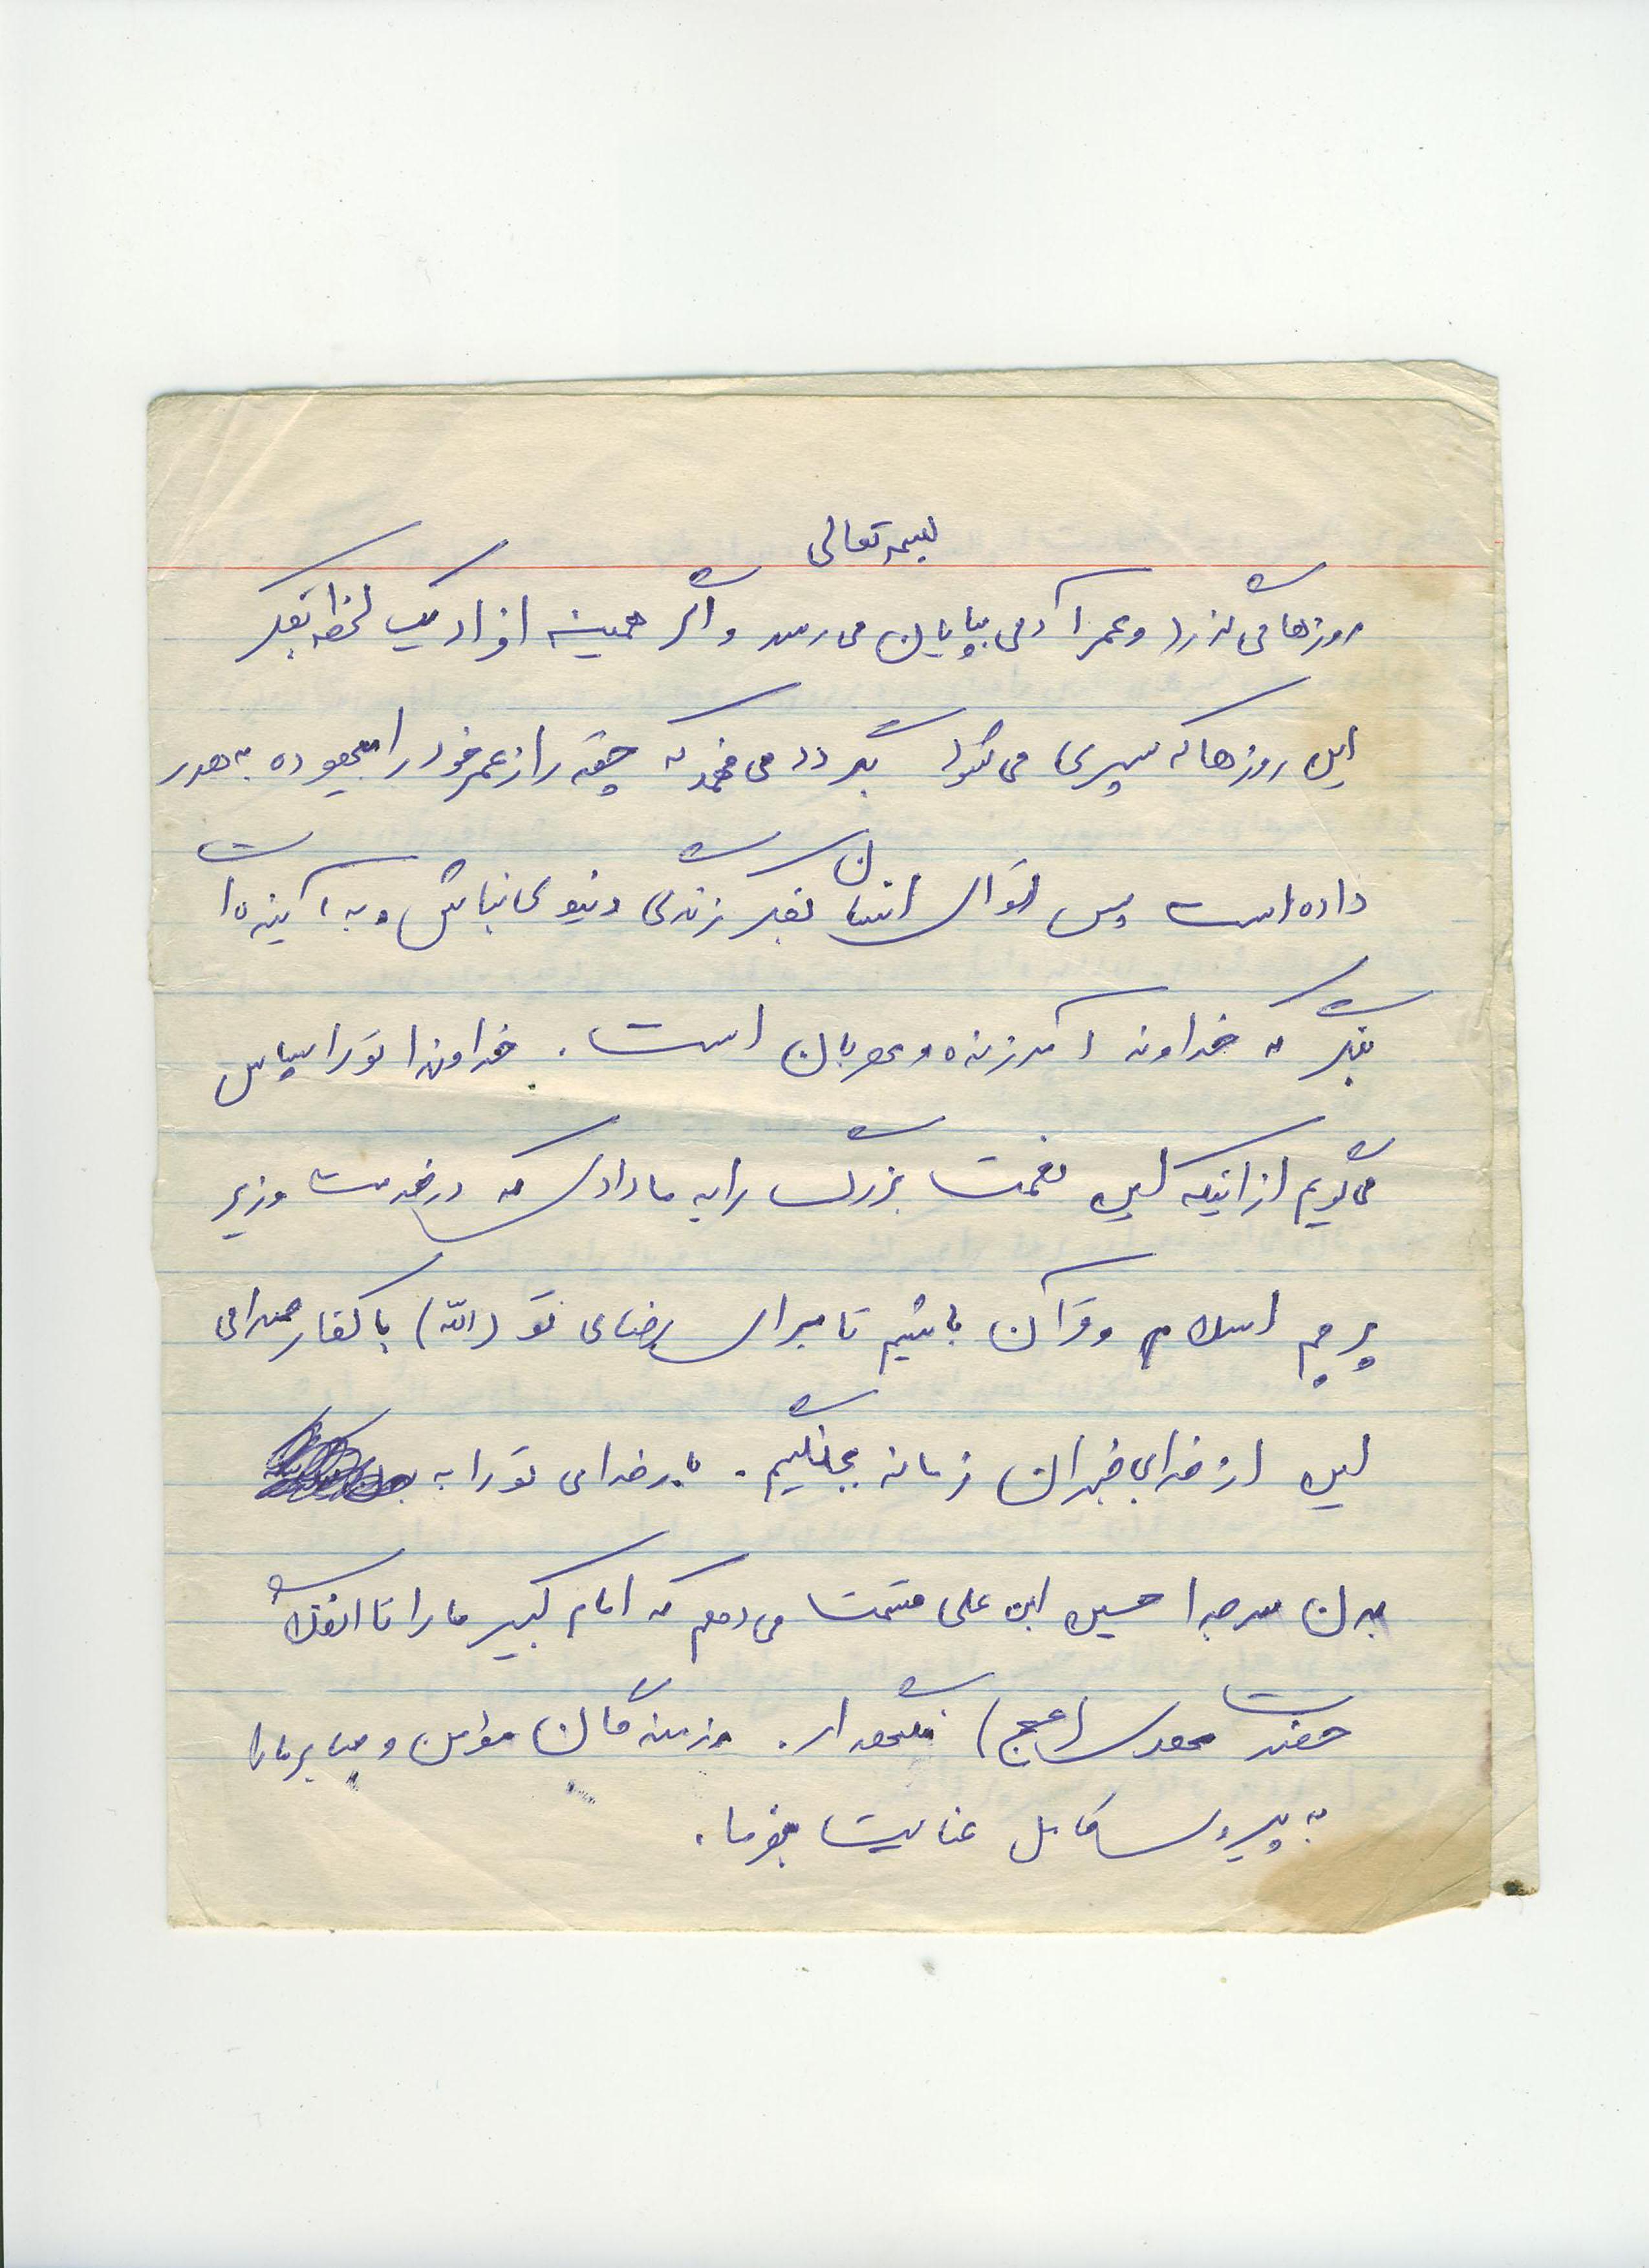 بسمه تعالی
روزها می گذرد و عمر آدمی بپایان می رسد و اگر همیشه افراد یک لحظه بفکر
این روزها که سپری می شود بگردد می فهمد که چقدر از عمر خود را بیهوده به هدر
داده است پس تو ای انسان بفکر زندگی دنیوی نباش و به آینده ات
بنگر که خداوند آمرزنده و مهربان است . خداوندا تو را سپاس
می گویم از اینکه این نعمت بزرگ را به ما دادی که در خدمت و زیر
پرچم اسلام و قرآن باشیم تا برای رضای تو (الله) با کفار صدامی
این از خدا بی خبران زمانه بجنگیم . بار خدای تو را به
بدن سر جدا حسین ابن علی قسمت می دهم که امام کبیر ما را تا انقلاب
حضرت مهدی (عج) نگهدار . رزمندگان مؤمن و صابر ما را
به پیروزی کامل عنایت بفرما .